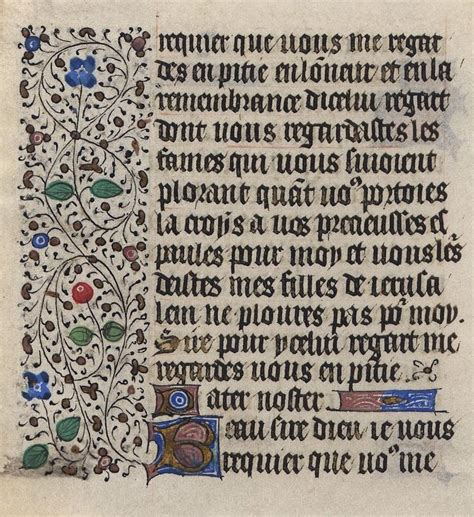 requier que uous me regar
des en pitie en lõneur et en la
remembrance dicelui regart
dont uous regardastes les
fames qui uous suioient
plorant quãt uoꝰ portoies
la croys a uos precieusses es
paules pour moy et uous lẽs
deistes mes filles de ierusa
lem ne ploures pas põ moy.
Sire pour ycelui regart me
regardes uous en pitie
Pater noster
Beau sire dieu ie uous
requier que uoꝰ me